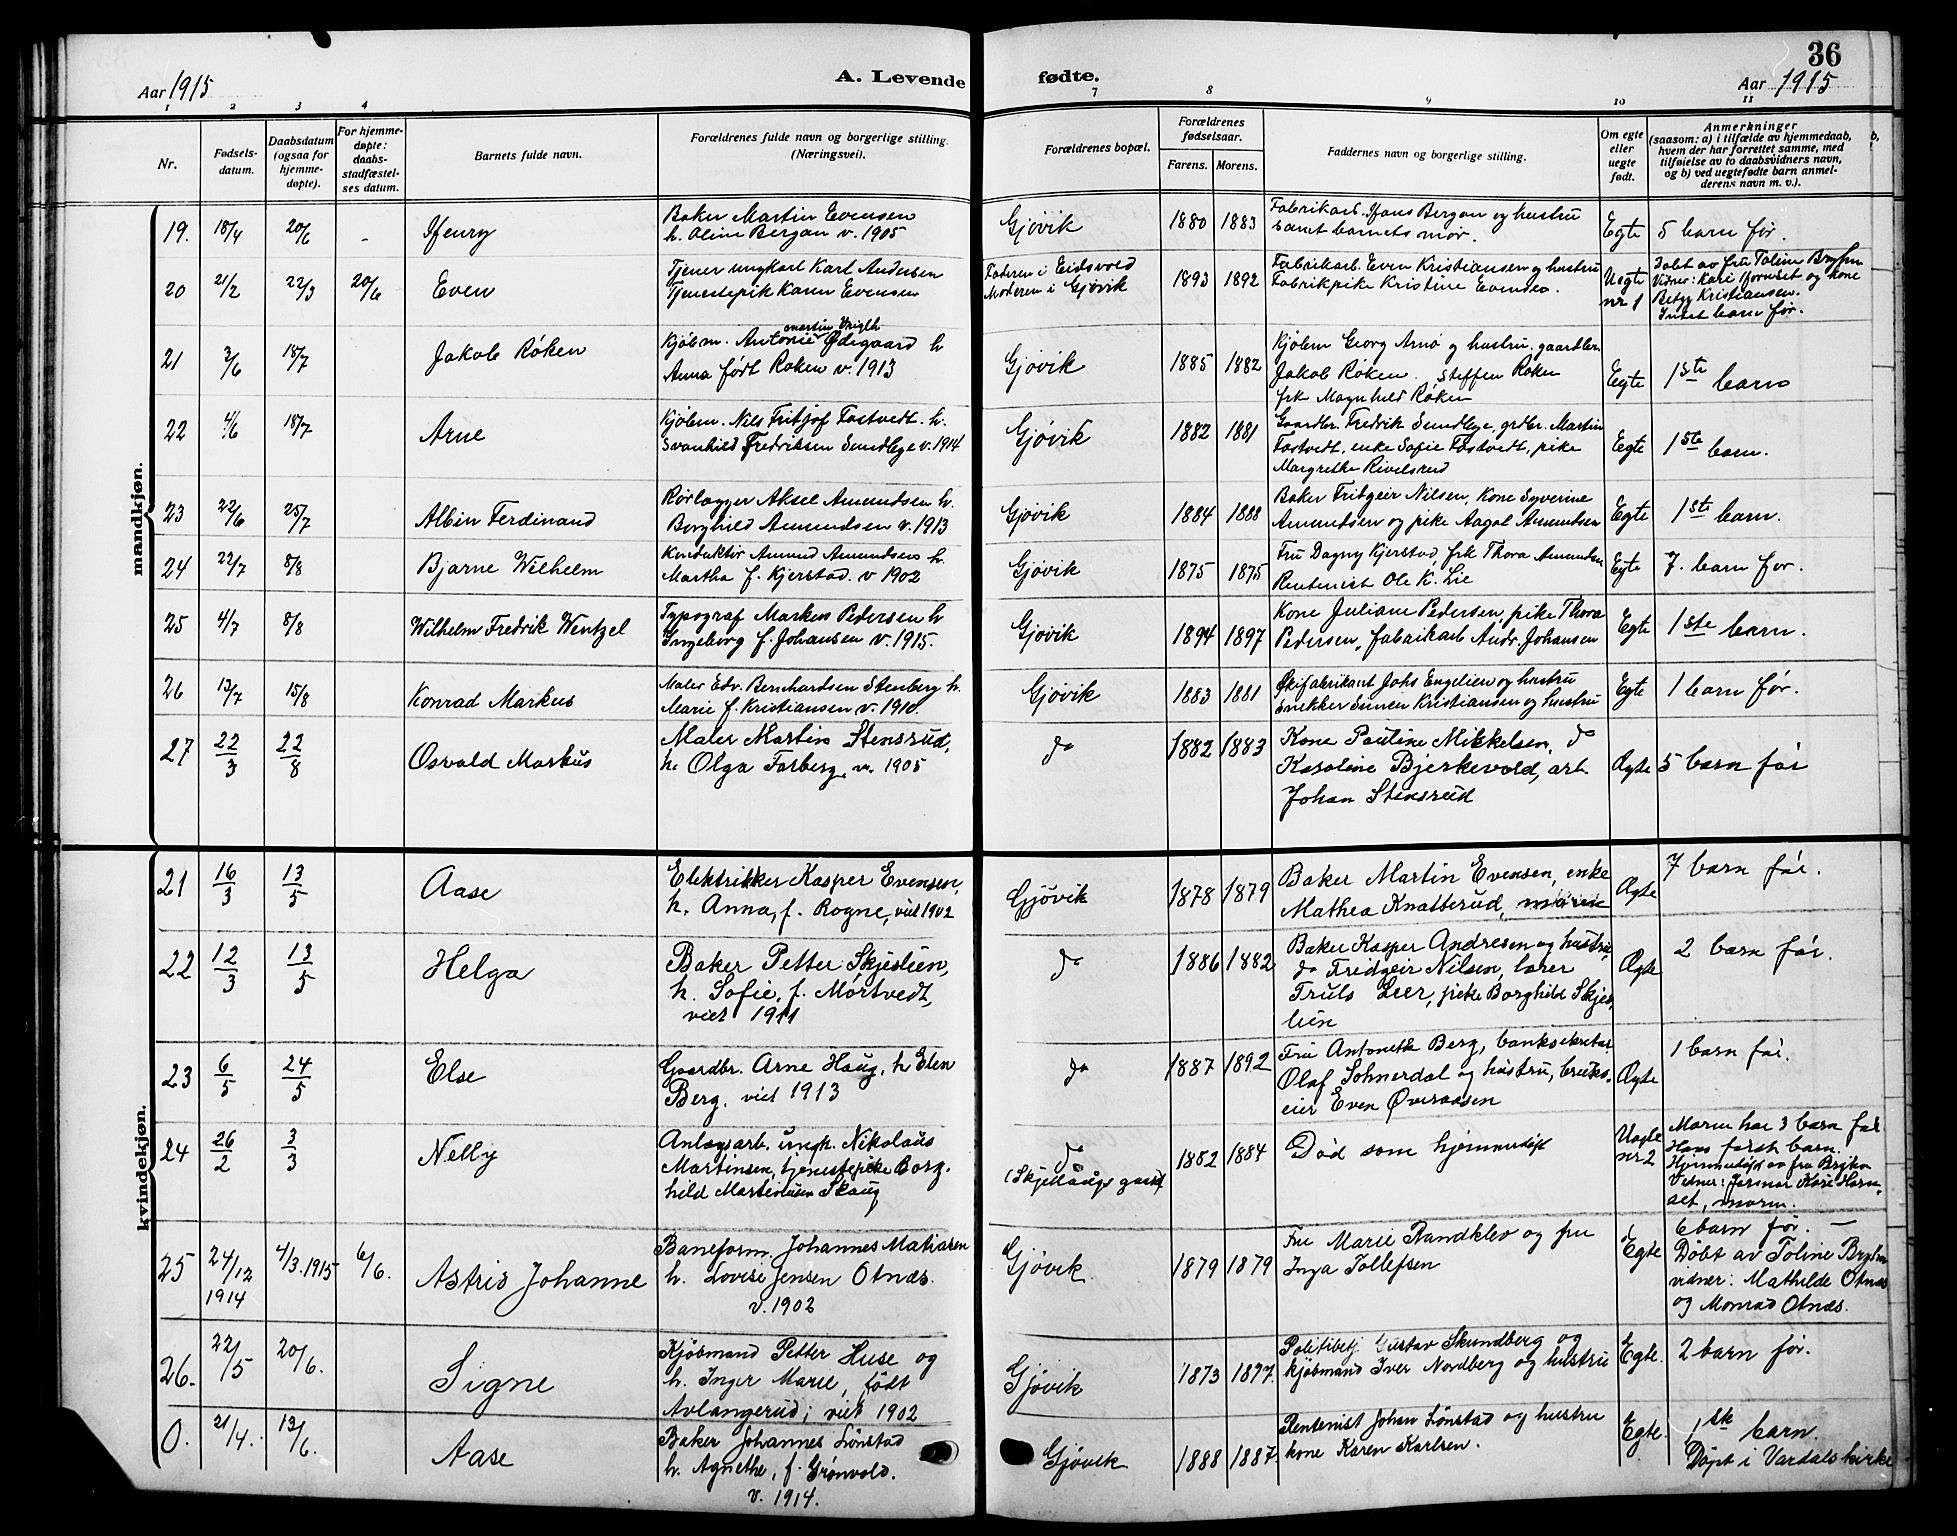 36
Aar 1915
A. Levende fødte.
Aar 1915
1 2 3 4 7 8 9 10 11
Nr.
Fødsels-
datum.
Daabsdatum
(ogsaa for
hjemme-
døpte).
For hjemme-
døpte:
daabs-
stadfæstel-
ses datum.
Barnets fulde navn.
Forældrenes fulde navn og borgerlige stilling.
(Næringsvei).
Forældrenes bopæl.
Forældrenes
fødselsaar.
Farens. Morens.
Faddernes navn og borgerlige stilling.
Om egte
eller
uegte
født.
Anmerkninger
(saasom: a) i tilfælde av hjemmedaab,
hvem der har forrettet samme, med
tilføielse av to daabsvidners navn,
og b) ved uegtefødte barn anmel-
derens navn m. v.).
b,
mandkjøn.
19. 18/4 20/6 - Henry
Baker Martin Evensen
h. Oline Bergan v. 1905
Gjøvik 1880 1883
Fabrikarb. Hans Bergan og hustru
samt barnets mor.
Egte 5 barn før.
20 21/2 22/3 20/6 Even
Tjener ungkarl Karl Andersen
Tjenestepik Karen Evensen
Faderen i Eidsvold
Moderen i Gjøvik
1893 1892
Fabrikarb. Even Kristiansen og hustru
Fabrikpike Kristine Evensen.
Uegte
nr 1
Døbt av fru Toline
Vidner: Kari Hornset og kone
Betzy Kristiansen.
Intet barn før.
21 3/6 18/7 Jakob Røken
Kjøbm. Antonie Martin Ødegaard h
Anna født Røken v. 1913
Gjøvik 1885 1882
Kjøbm Georg Arnø og hustru. gaardbr.
Jakob Røken. Steffen Røken
frk Magnhild Røken
Egte 1ste barn
22 4/6 18/7 Arne
Kjøbm. Nils Fritjof Tostvedt. h.
Svanhild Fredriksen Sundlege v. 1914
Gjøvik 1882 1881
Gaardbr. Fredrik Sundlege, grdbr. Martin
Tostvedt, enke Sofie Tostvedt, pike
Margrethe Rivelsrud
Egte 1ste barn.
23 22/6 25/7 Albin Ferdinand
Rørlægger Aksel Amundsen h.
Borghild Amundsen v. 1913
Gjøvik 1884 1888
Baker Fritgeir Nilsen, Kone Syverine
Amundsen og pike Aagot Amundsen
Egte 1ste barn.
24 22/7 8/8 Bjarne Wilhelm
Konduktør Amund Amundsen h.
Martha f. Kjerstad. v 1902
Gjøvik 1875 1875
Fru Dagny Kjerstad, frk Thora Amundsen
Rentenist Ole K. Lie
Egte 7. barn før.
25 4/7 8/8 Wilhelm Fredrik Wentzel
Typograf Markus Pedersen h
Ingeborg f. Johansen v. 1915.
Gjøvik 1894 1897
Kone Juliane Pedersen, pike Thora
Pedersen, fabrikarb Andr. Johansen
Egte 1ste barn.
26 13/7 15/8 Konrad Markus
Maler Edv. Bernhardsen Stenberg h.
Marie f. Kristiansen v. 1910.
Gjøvik 1883 1881
Skifabrikant Johs Engelien og hustru
snekker Simen Kristiansen og hustru
Egte 1 barn før.
27 22/3 22/8 Osvald Markus
Maler Martin Stensrud,
h. Olga Farberg, v. 1905
do 1882 1883
Kone Pauline Mikkelsen, do
Karoline Bjerkevold, arb.
Johan Stensrud
Ægte 5 barn før
kvindekjøn.
21 16/3 13/5 Aase
Elektrikker Kasper Evensen,
h. Anna, f. Rogne, viet 1902
Gjøvik 1878 1879
Baker Martin Evensen, enke
Mathea Knatterud, moren
Ægte 7 barn før.
22 12/3 13/5 Helga
Baker Petter Skjeslien,
h. Sofie, f. Mørtvedt,
viet 1911
do 1886 1882
Baker Kasper Andresen og hustru,
do Fredgeir Nilsen, lærer
Truls Leer, pike Borghild Skjes-
lien
Ægte 2 barn før.
23 6/5 24/5 Else
Gaardbr. Arne Haug, h Elen
Berg, viet 1913
do 1887 1892
Fru Antonette Berg, banksekretær
Olaf Sohnerdal og hustru, bruks-
eier Even Øveraasen
Ægte 1 barn før.
24 26/2 3/3 Nelly
Anlægsarb. ungk. Nikolaus
Martinsen, tjenestepike Borg-
hild Martinsen Skaug
do
(Skjellaugs gaard)
1882 1884
Død som hjemmedøpt
Uægte
nr 2
Moren har 3 barn før
Hans første barn.
Hjemmedøpt av fru
Vidner: Jormor Kari Horn-
set, moren.
25 24/12 1914 4/3. 1915 6/6. Astrid Johanne
Baneform. Johannes Matiasen
h. Lovise Jensen Otnæs.
v. 1902
Gjøvik 1879 1879
Fru Marie Randklev og fru
Inga Tollefsen
Egte
6 barn før. —
Døbt av Toline
vidner: Mathilde Otnæs
og Monrad Otnæs.
26. 22/5 20/6. Signe
Kjøbmand Petter Huse og
h. Inger Marie, født
Avlangerud; viet 1902
Gjøvik 1873 1877.
Politibetj. Gustav Skundberg og
kjøbmand Iver Nordberg og hustru
Egte. 2 barn før.
0. 21/4. 13/6. Aase
Baker Johannes Lønstad
h. Agnethe, f. Grønvold.
v. 1914.
Gjøvik 1888 1887
Rentenist Johan Lønstad og hustru
kone Karen Karlsen.
Egte. 1ste barn.
Døpt i Vardals kirke